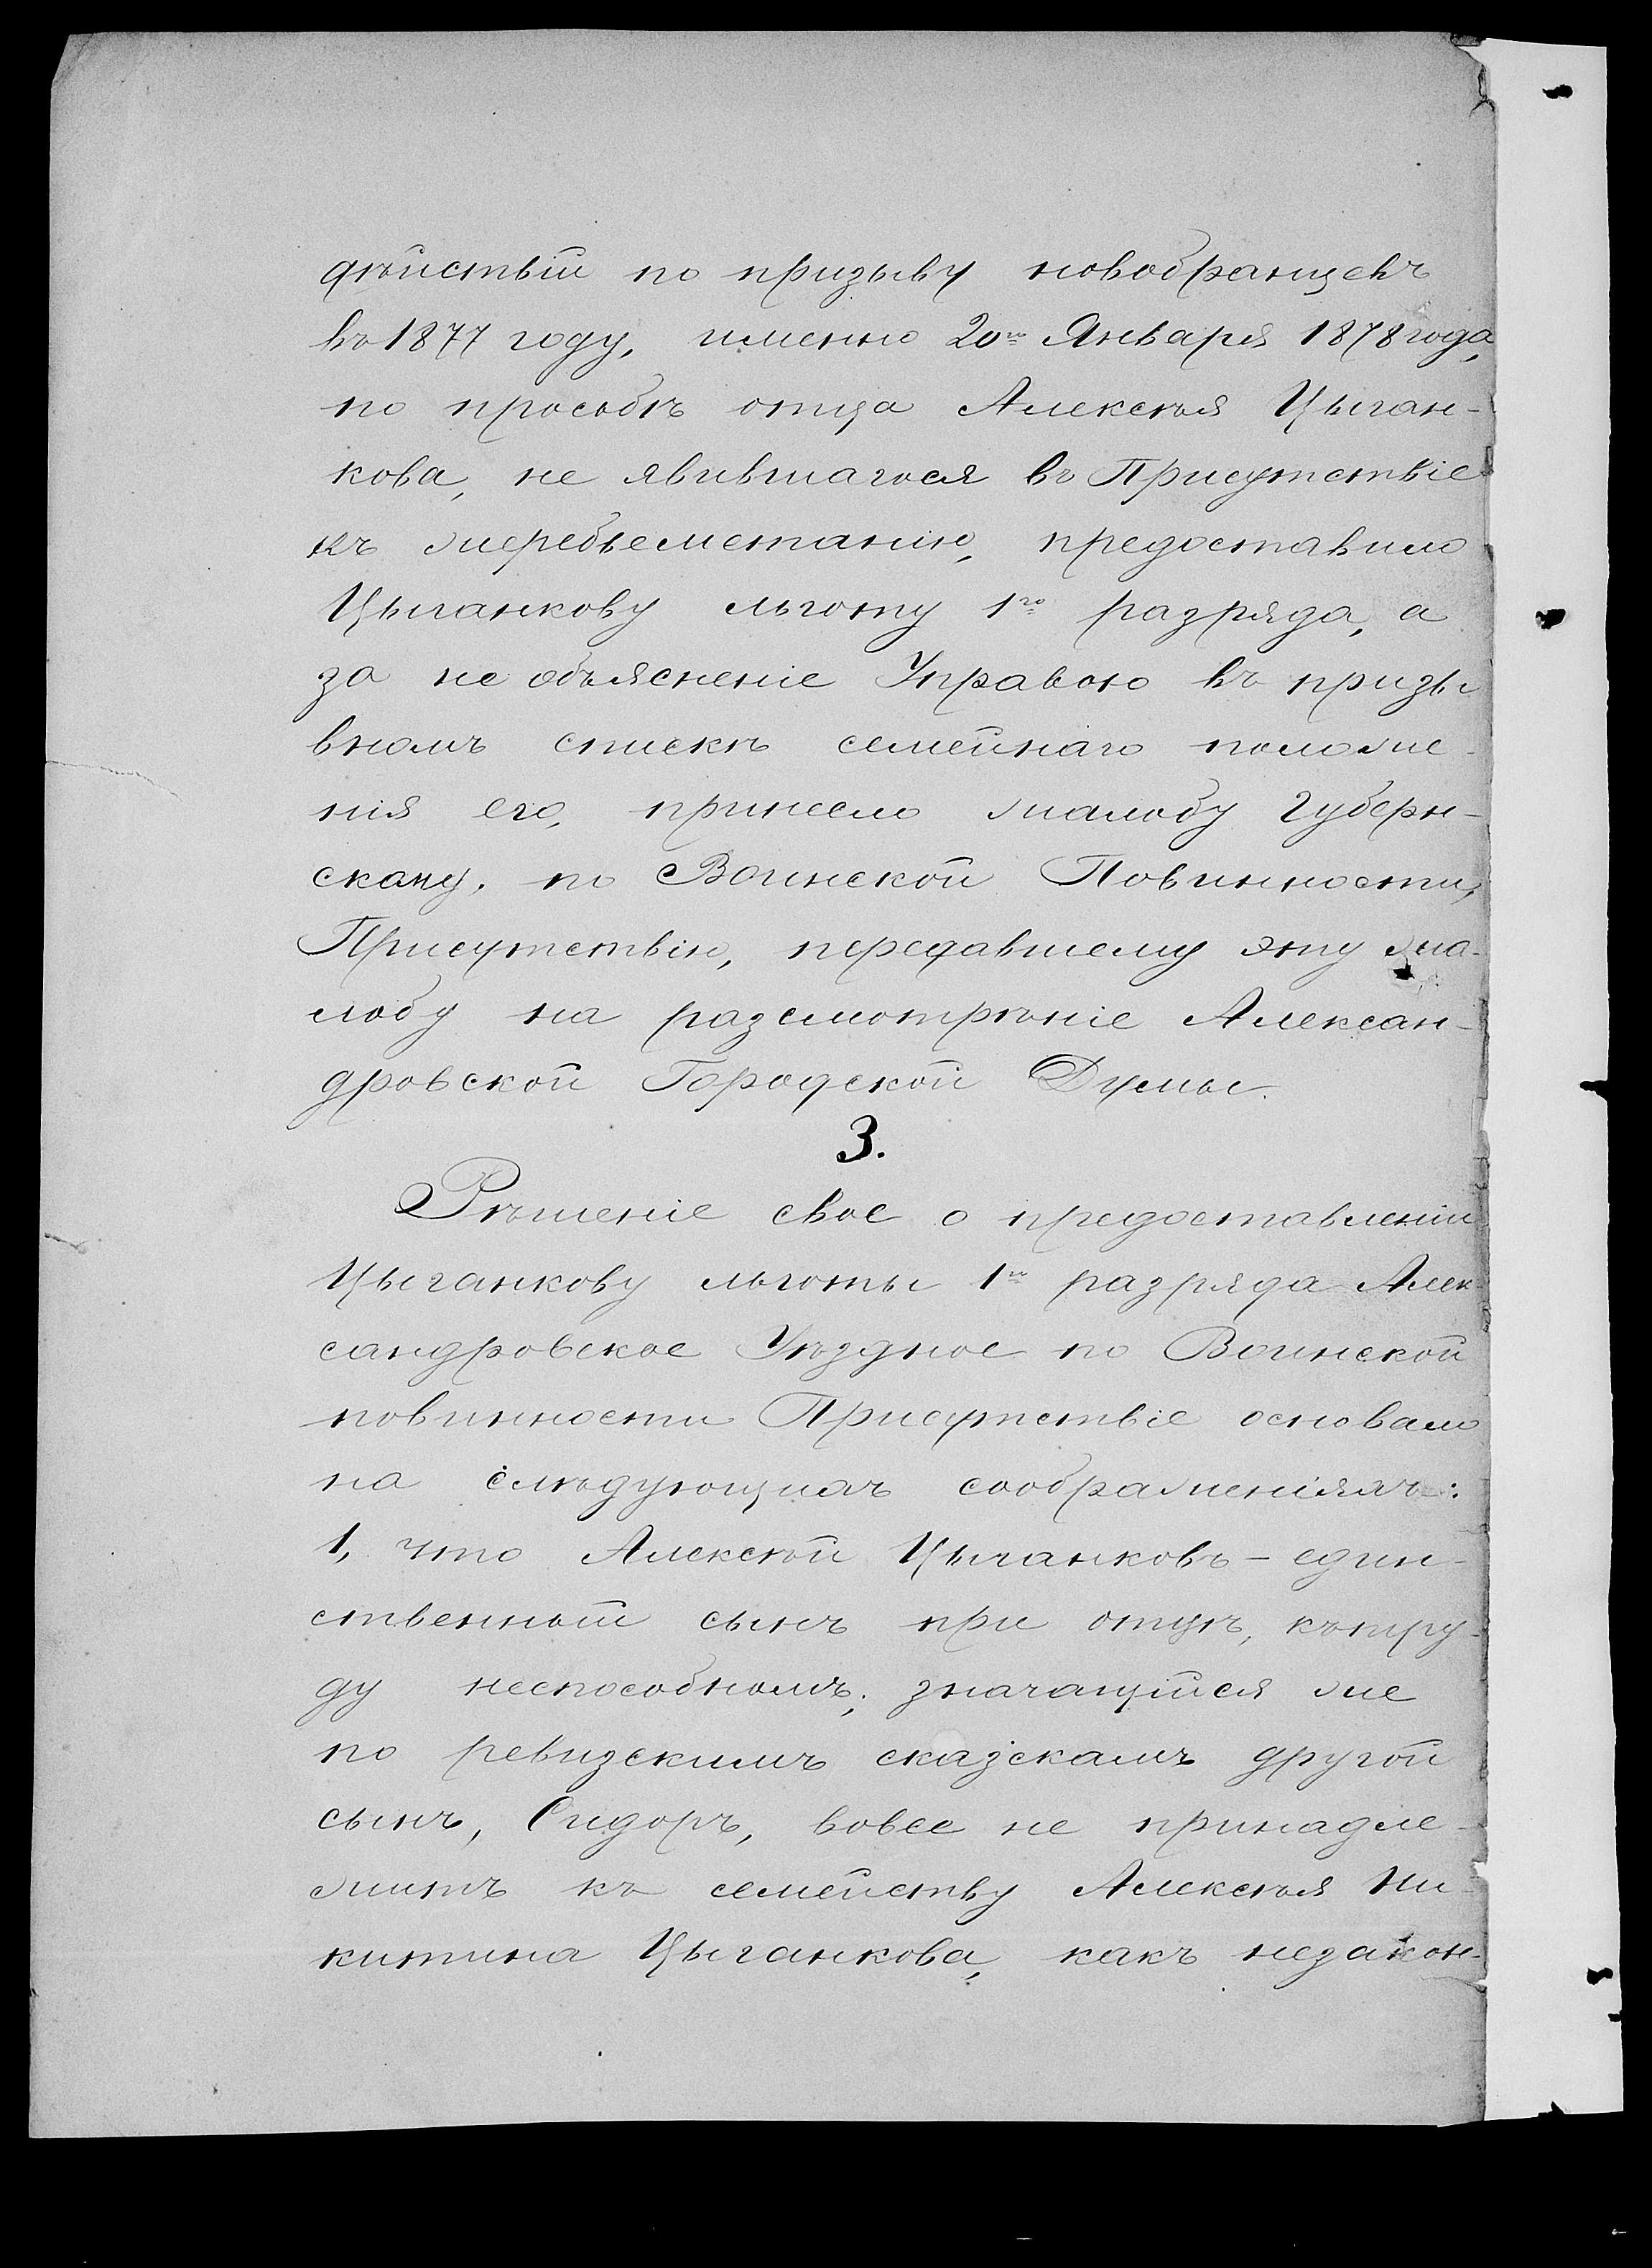 дѣйствій по призыву новобранцевъ
въ 1877 году, именно 20го Января 1878 года,
по просьбѣ отца Алексѣя Цыган-
кова, не явившагося въ Присутствіе
къ жеребьеметанію, предоставило
Цыганкову льготу 1го разряда, а
за не объясненіе Управою въ призы
вномъ спискѣ семейнаго положе-
нія его, принесло жалобу Губерн-
скому, по Воинской Повинности,
Присутствію, передавшему эту жа-
лобу на разсмотрѣніе Алексан-
дровской Городской Думы.
3.
Рѣшеніе свое о предоставленіи
Цыганкову льготы 1го разряда Алек-
сандровское Уѣздное по Воинской
повинности Присутствіе основало
на слѣдующихъ соображеніяхъ:
1, что Алексѣй Цыганковъ – един-
ственный сынъ при отцѣ, къ тру-
ду неспособномъ; значащійся же
по ревизскимъ сказскамъ другой
сынъ, Сидоръ, вовсе не принадле-
житъ къ семейству Алексѣя Ни-
китина Цыганкова, какъ незакон-